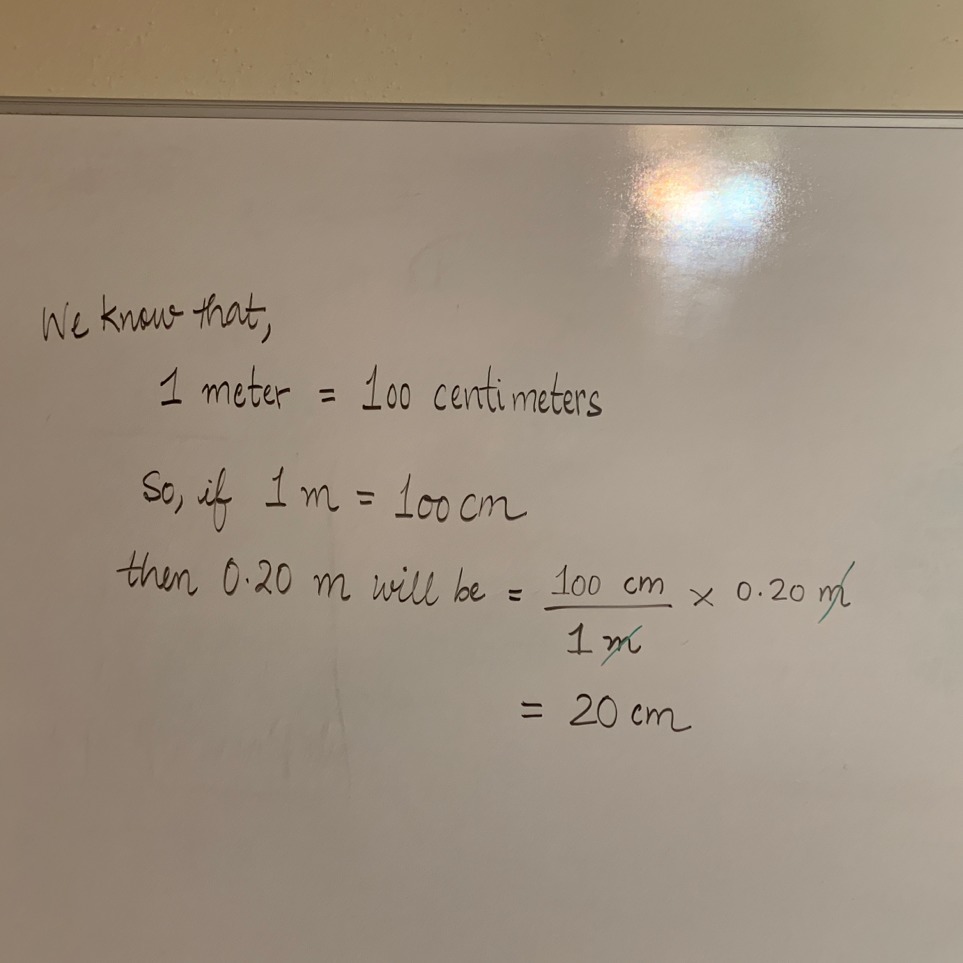 We know that,
1 meter = 100 centimeters
So, if 1 m = 100 cm
then 0.20 m will be = 100 cm / 1 m × 0.20 m
= 20 cm